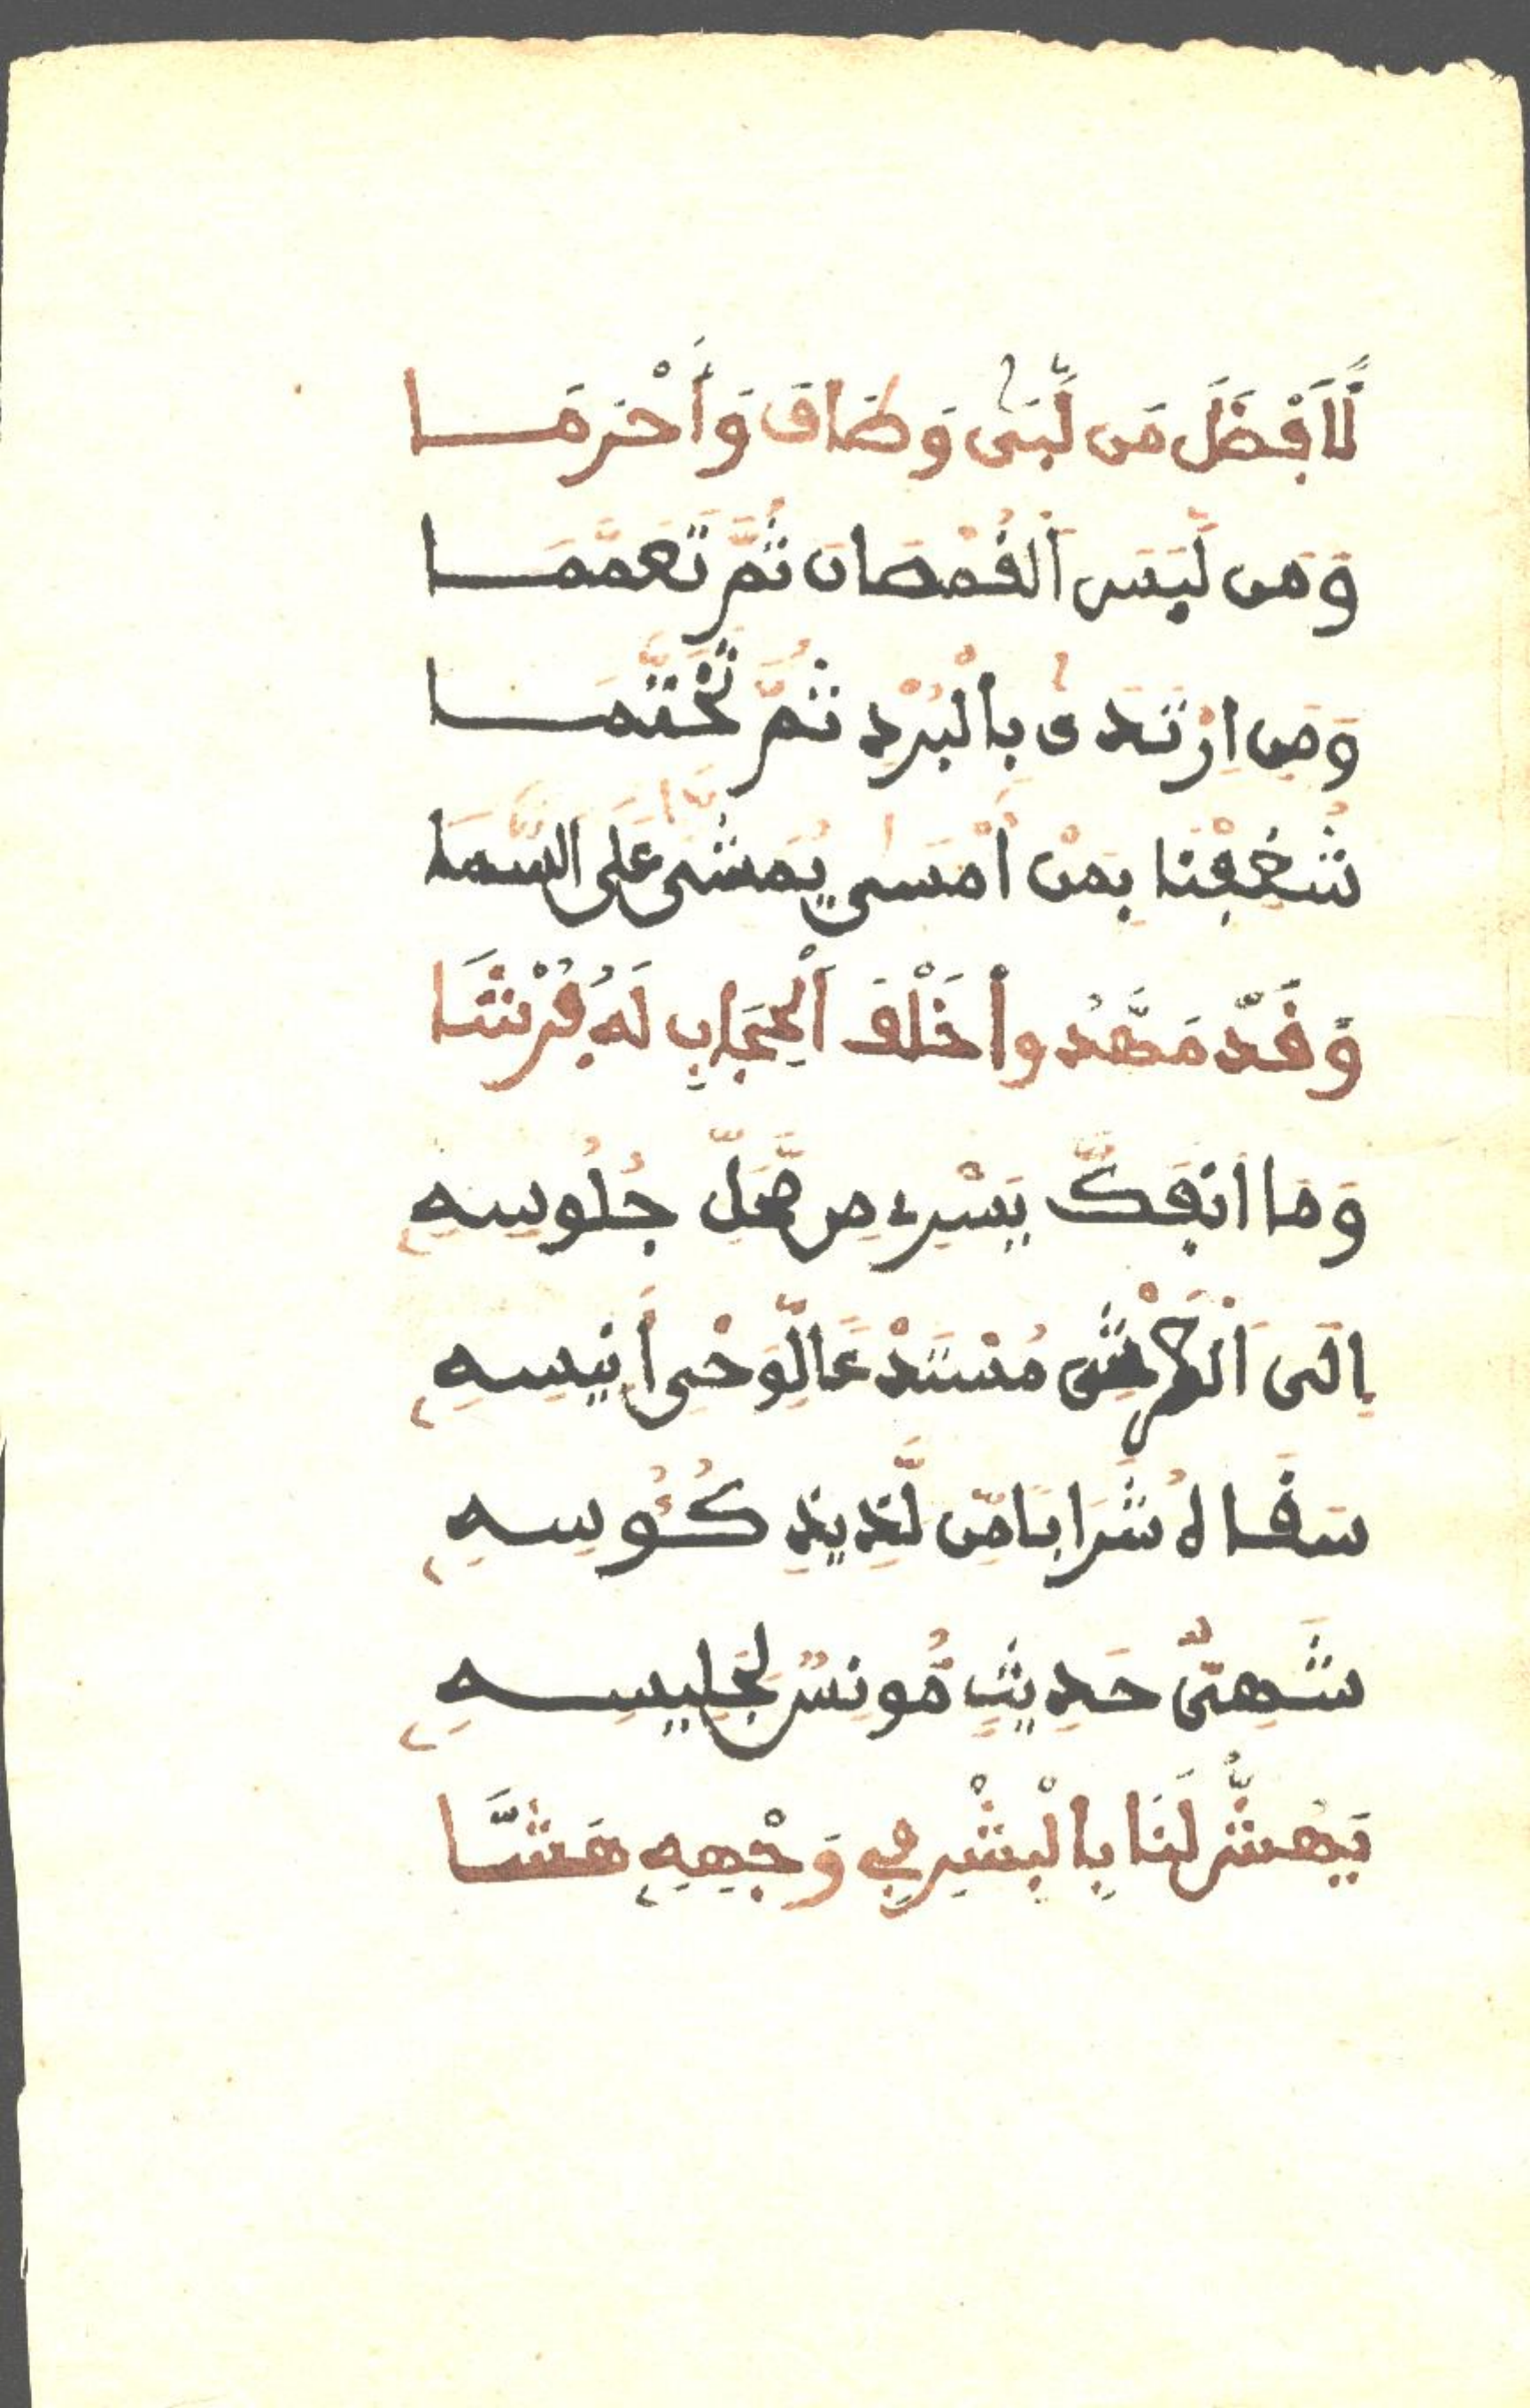 لَأَفْضَلَ مَن لَّبَّىٰ وَطَافَ وَأَحْرَمَا
وَمَن لَّبِسَ الْقُمْصَانَ ثُمَّ تَعَمَّمَا
وَمَنِ ارْتَدَىٰ بِالْبُرْدِ ثُمَّ تَخَتَّمَا
شُغِفْنَا بِمَنْ أَمْسَى يُمَشَّى عَلَى السَّمَا
وَقَدْ مَهَّدُوا خَلْفَ الْحِجَابِ لَهُ فُرْشَا
وَمَا انفَكَّ يَسْرِي مِن مَّحَلِّ جُلُوسِهِ
إِلَى الْعَرْشِ مُسْتَدْعًا لِّوَحْيِ أَنِيسِهِ
سَقَاهُ شَرَابًا مِّن لَّذِيذِ كُئُوسِهِ
شَهِيُّ حَدِيثٍ مُّونِسٌ لِجَلِيسِهِ
يَهُشُّ لَنَا بِالْبِشْرِ فِي وَجْهِهِ هَشَّا